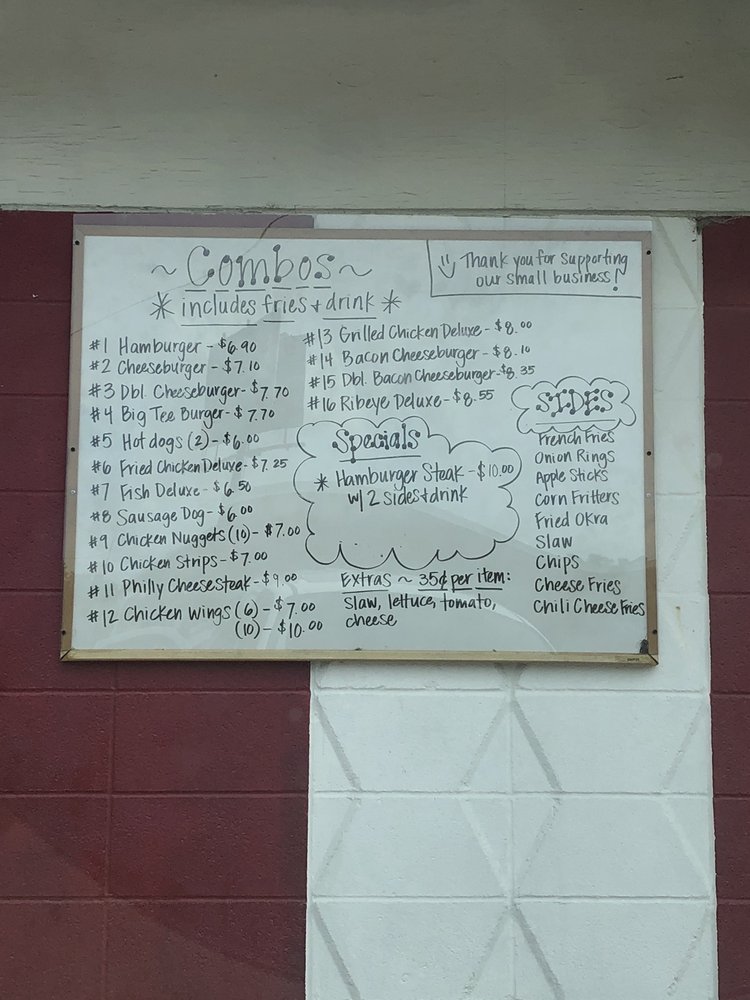 ~ Combos ~
* includes fries + drink *
#1 Hamburger - $6.90
#2 Cheeseburger - $7.10
#3 Dbl. Cheeseburger - $7.70
#4 Big Tee Burger - $7.70
#5 Hot dogs (2) - $6.00
#6 Fried Chicken Deluxe - $7.25
#7 Fish Deluxe - $6.50
#8 Sausage Dog - $6.00
#9 Chicken Nuggets (10) - $7.00
#10 Chicken Strips - $7.00
#11 Philly Cheesesteak - $9.00
#12 Chicken Wings (6) - $7.00
(10) - $10.00
#13 Grilled Chicken Deluxe - $8.00
#14 Bacon Cheeseburger - $8.10
#15 Dbl. Bacon Cheeseburger - $8.35
#16 Ribeye Deluxe - $8.55
Specials
* Hamburger Steak - $10.00
w/ 2 sides + drink
Extras ~ 35¢ per item:
slaw, lettuce, tomato,
cheese
Thank you for supporting
our small business!
SIDES
French Fries
Onion Rings
Apple Sticks
Corn Fritters
Fried Okra
Slaw
Chips
Cheese Fries
Chili Cheese Fries